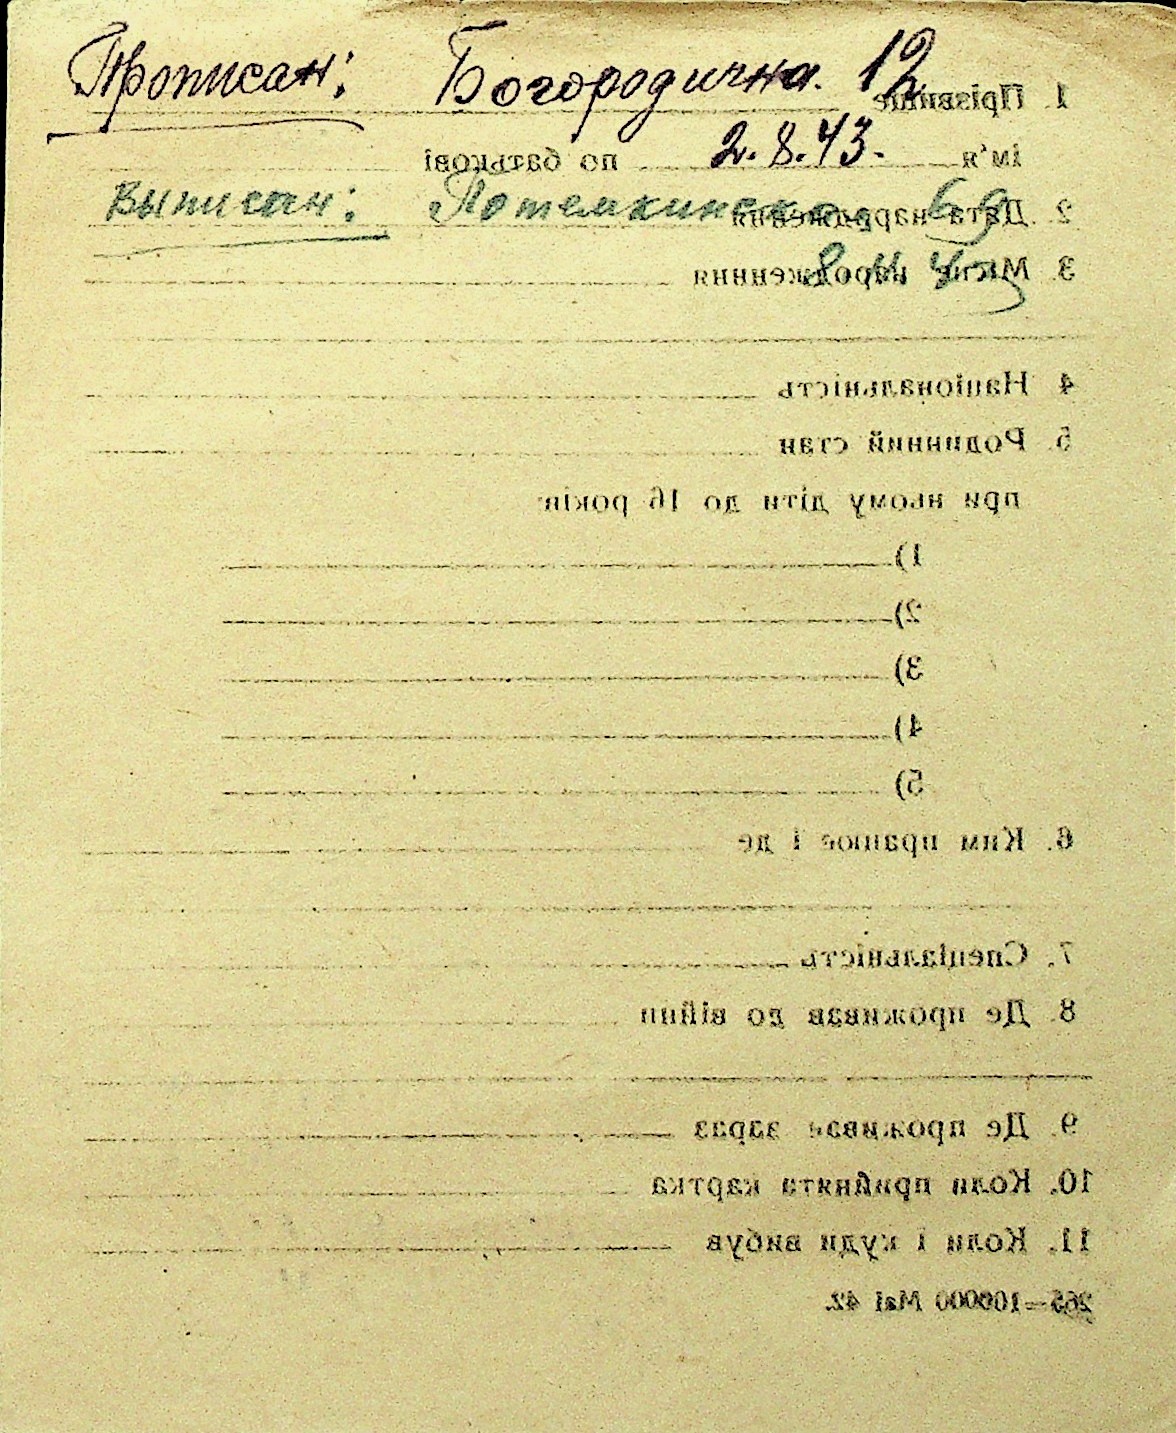 Прописан: Богородична. 12
1. Прізвище
2.8.43.
ім'я по батькові
Выписан: Потемкинска 69
2. Дата народження
3. Місце народження
4 Національність
5. Родинний стан
при ньому діти до 16 років:
1)
2)
3)
4)
5)
6. Ким працює і де
7. Спеціальність
8. Де проживав до війни
9. Де проживає зараз
10. Коли прийнята картка
11. Коли і куди вибув
265—100000 Mai 42.